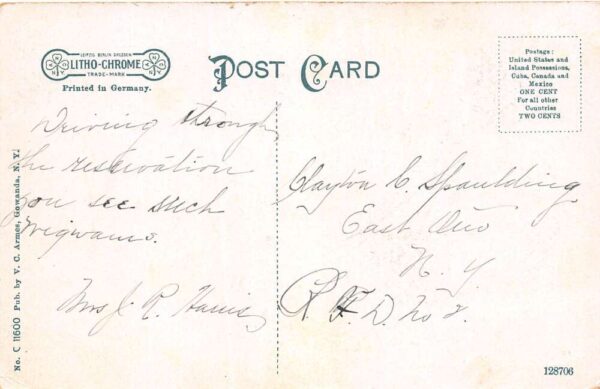 LEIPZIG BERLIN DRESDEN
LITHO-CHROME
TRADE-MARK
Printed in Germany.
POST CARD
Postage:
United States and
Island Possessions,
Cuba, Canada and
Mexico
ONE CENT
For all other
Countries
TWO CENTS
Driving through
the reservation
you see such
wigwams.
Mrs J. R. Harris
Clayton C. Spaulding
East Otto
N. Y.
R. F. D. No 2.
No. C 11600 Pub. by V. C. Armes, Gowanda, N. Y.
128706